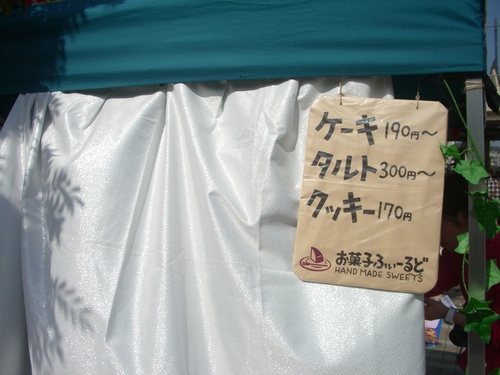 ケーキ 190円～
タルト 300円～
クッキー 170円
お菓子ふぃーるど
HAND MADE SWEETS